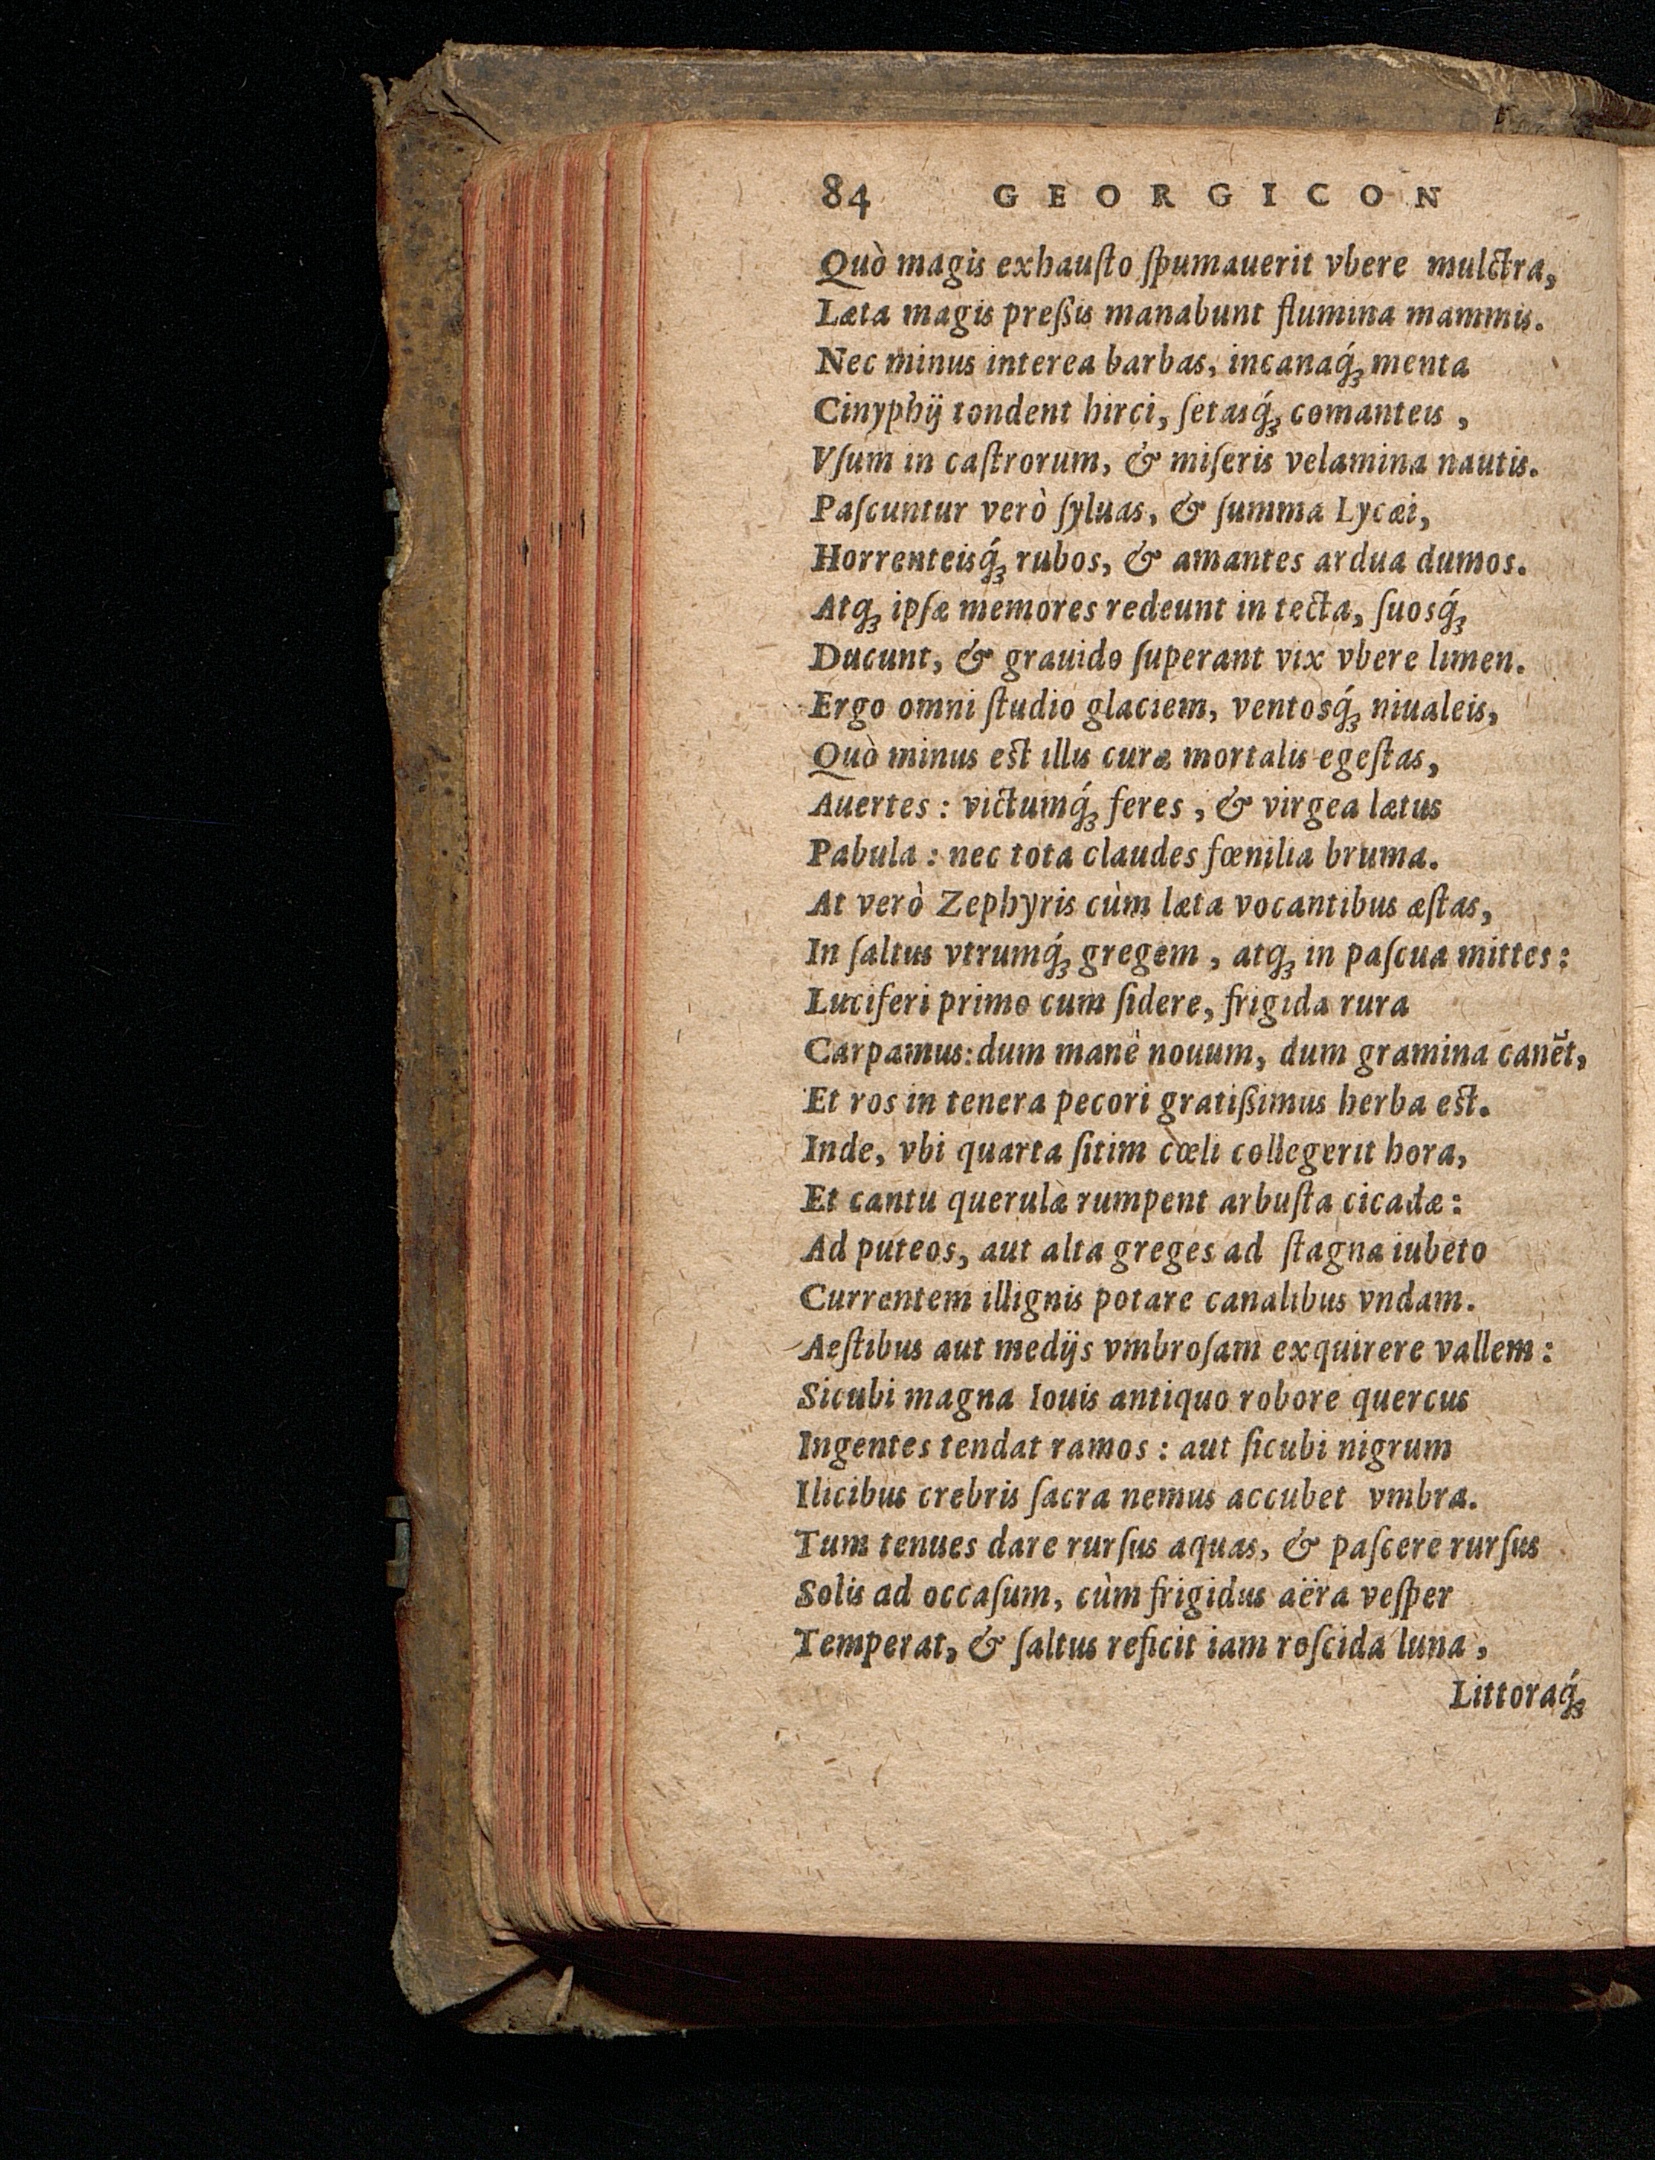 84 GEORGICON
Quò magis exhauſto ſpumauerit vbere mulctra,
Læta magis preßis manabunt flumina mammis.
Nec minus interea barbas, incanaq́ꝫ menta
Cinyphij tondent hirci, ſetasq́ꝫ comanteis,
Vſum in caſtrorum, & miſeris velamina nautis.
Paſcuntur verò ſyluas, & ſumma Lycæi,
Horrenteisq́ꝫ rubos, & amantes ardua dumos.
Atqꝫ ipſæ memores redeunt in tecta, ſuosq́ꝫ
Ducunt, & grauido ſuperant vix vbere limen.
Ergo omni ſtudio glaciem, ventosq́ꝫ niualeis,
Quò minus est illis curæ mortalis egeſtas,
Auertes: victumq́ꝫ feres, & virgea lætus
Pabula: nec tota claudes fœnilia bruma.
At verò Zephyris cùm læta vocantibus æſtas,
In ſaltus vtrumq́ꝫ gregem, atqꝫ in paſcua mittes:
Luciferi primo cum ſidere, frigida rura
Carpamus: dum manè nouum, dum gramina canēt,
Et ros in tenera pecori gratißimus herba est.
Inde, vbi quarta ſitim cœli collegerit hora,
Et cantu querulæ rumpent arbuſta cicadæ:
Ad puteos, aut alta greges ad ſtagna iubeto
Currentem illignis potare canalibus vndam.
Aeſtibus aut medijs vmbroſam exquirere vallem:
Sicubi magna Iouis antiquo robore quercus
Ingentes tendat ramos: aut ſicubi nigrum
Ilicibus crebris ſacra nemus accubet vmbra.
Tum tenues dare rurſus aquas, & paſcere rurſus
Solis ad occaſum, cùm frigidus aëra veſper
Temperat, & ſaltus reficit iam roſcida luna,
Littoraq́ꝫ